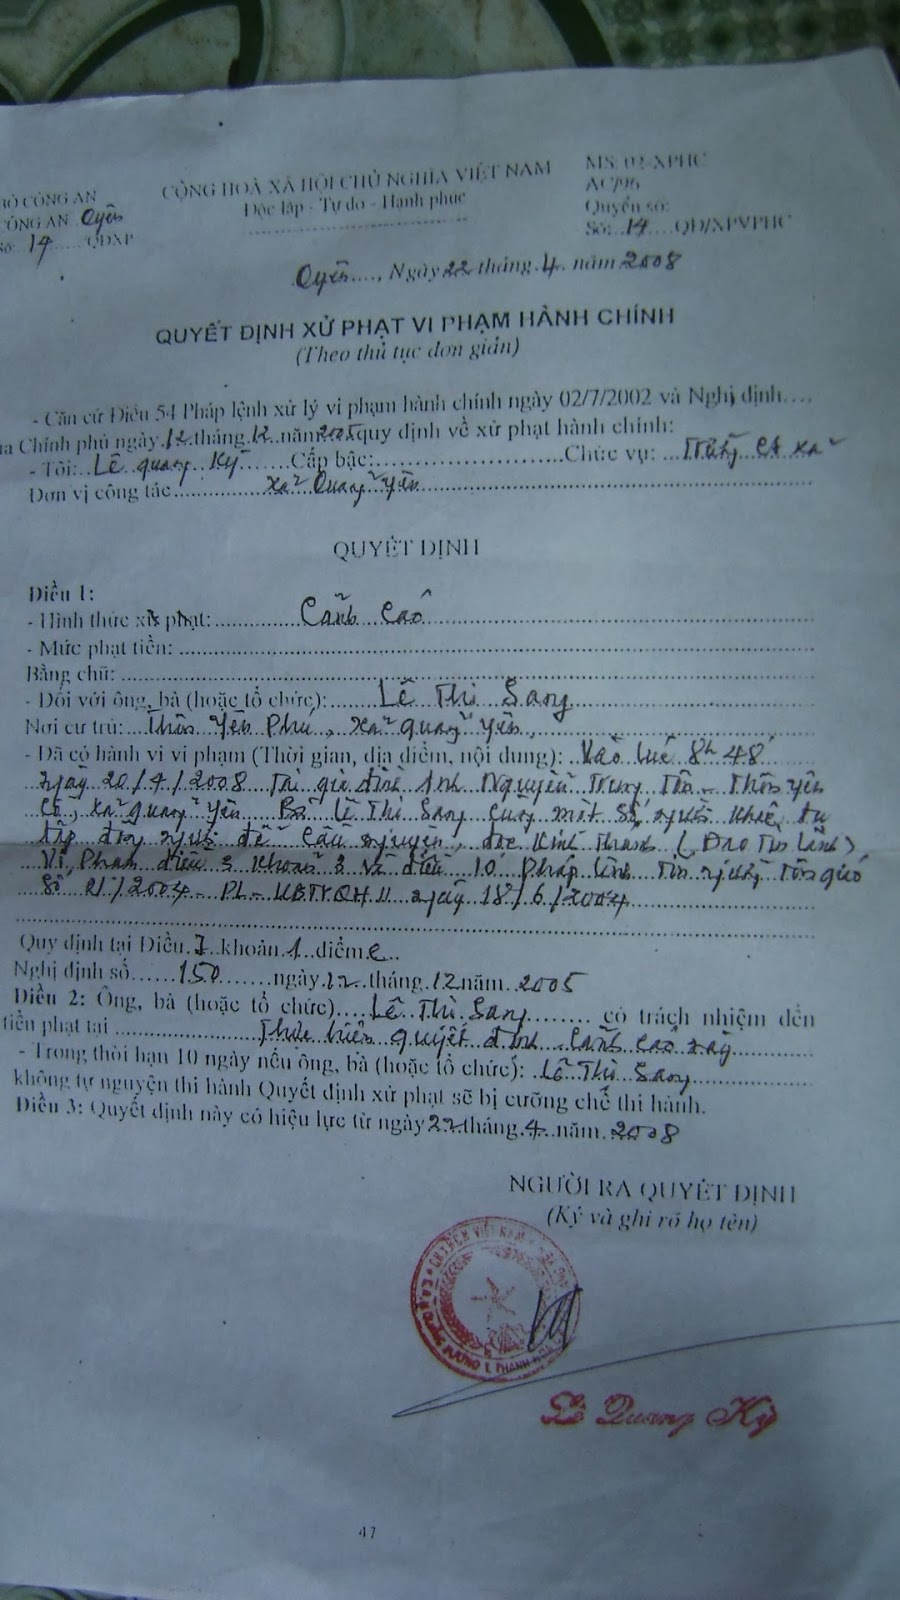 BỘ CÔNG AN
CÔNG AN Quyên
Số: 14 QĐXP
CỘNG HOÀ XÃ HỘI CHỦ NGHĨA VIỆT NAM
Độc lập - Tự do - Hạnh phúc
MS: 02-XPHC
Quyển số:
Số: 14 QĐ/XPVPHC
Ngày 22 tháng 4 năm 2008
QUYẾT ĐỊNH XỬ PHẠT VI PHẠM HÀNH CHÍNH
(Theo thủ tục đơn giản)
- Căn cứ Điều 54 Pháp lệnh xử lý vi phạm hành chính ngày 02/7/2002 và Nghị định....
của Chính phủ ngày 12 tháng 12 năm 2005 quy định về xử phạt hành chính:
- Tôi: Lê Quang Kỳ Cấp bậc: Chức vụ: Trưởng CA xã
Đơn vị công tác xã Quảng Yên
QUYẾT ĐỊNH
Điều 1:
- Hình thức xử phạt: Cảnh Cáo
- Mức phạt tiền:
Bằng chữ:
- Đối với ông, bà (hoặc tổ chức): Lê Thị Sang
Nơi cư trú: Thôn Yên Phú, xã Quảng Yên,
- Đã có hành vi vi phạm (Thời gian, địa điểm, nội dung): Vào lúc 8h 48'
ngày 20/4/2008 Tại gia đình Anh Nguyễn Trung Tôn - Thôn Yên
xã Quảng Yên Bà Lê Thị Sang cùng một số người khác tụ
tập đông người để cầu nguyện, đọc Kinh Thánh (Đạo Tin Lành)
Vi Phạm điều 3 khoản 3 và điều 10 Pháp lệnh Tín ngưỡng Tôn giáo
Số 21/2004 - PL - UBTVQH 11 ngày 18/6/2004
Quy định tại Điều 7 khoản 1 điểm c
Nghị định số 150 ngày 12 tháng 12 năm 2005
Điều 2: Ông, bà (hoặc tổ chức) Lê Thị Sang có trách nhiệm đến
tiền phạt tại Thực hiện quyết định Cảnh Cáo này
- Trong thời hạn 10 ngày nếu ông, bà (hoặc tổ chức): Lê Thị Sang
không tự nguyện thi hành Quyết định xử phạt sẽ bị cưỡng chế thi hành.
Điều 3: Quyết định này có hiệu lực từ ngày 22 tháng 4 năm 2008
NGƯỜI RA QUYẾT ĐỊNH
(Ký và ghi rõ họ tên)
Lê Quang Kỳ
47